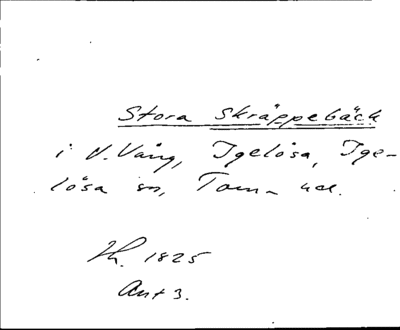 Stora Skräppebäck
i N. Vång, Igelösa, Ige-
lösa sn, Torna hd.
1825
Akt 3.